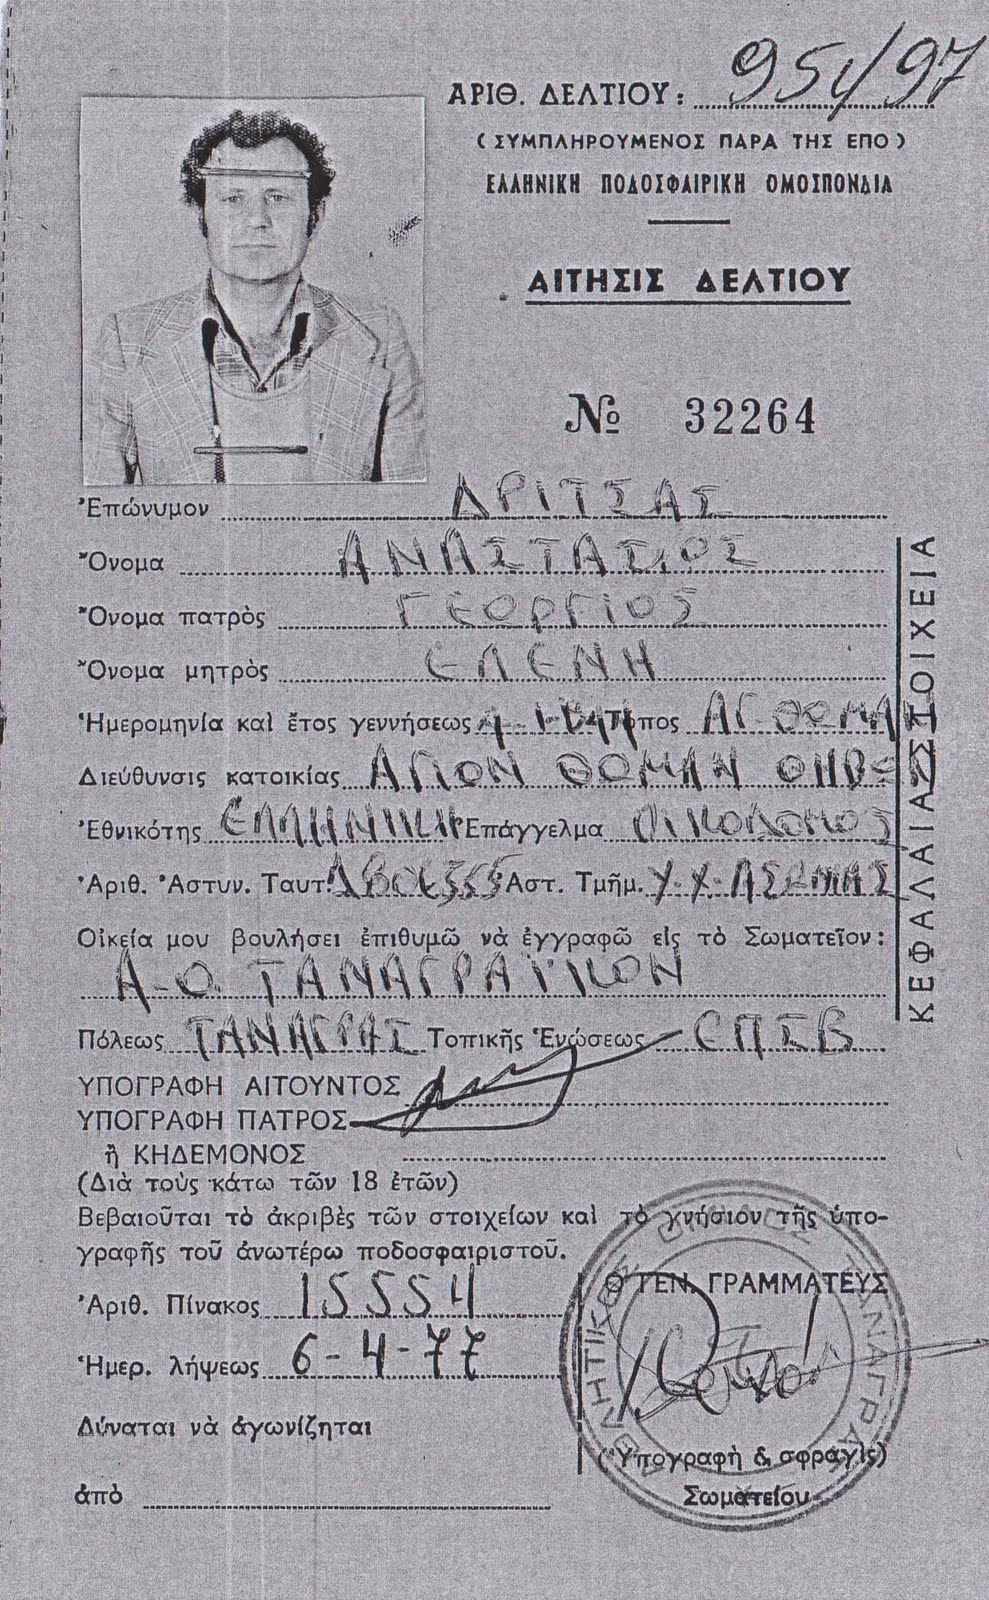 ΑΡΙΘ. ΔΕΛΤΙΟΥ: 951/97
(ΣΥΜΠΛΗΡΟΥΜΕΝΟΣ ΠΑΡΑ ΤΗΣ ΕΠΟ)
ΕΛΛΗΝΙΚΗ ΠΟΔΟΣΦΑΙΡΙΚΗ ΟΜΟΣΠΟΝΔΙΑ
ΑΙΤΗΣΙΣ ΔΕΛΤΙΟΥ
№ 32264
Ἐπώνυμον ΔΡΙΤΣΑΣ
Ὄνομα ΑΝΑΣΤΑΣΙΟΣ
Ὄνομα πατρὸς ΓΕΩΡΓΙΟΣ
Ὄνομα μητρὸς ΕΛΕΝΗ
Ἡμερομηνία καὶ ἔτος γεννήσεως Τόπος ΑΓ. ΘΩΜΑ
Διεύθυνσις κατοικίας ΑΓΙΟΝ ΘΩΜΑΝ
Ἐθνικότης ΕΛΛΗΝΙΚΗ Ἐπάγγελμα ΟΙΚΟΔΟΜΟΣ
Ἀριθ. Ἀστυν. Ταυτ. Ἀστ. Τμῆμ.
Οἰκεία μου βουλήσει ἐπιθυμῶ νὰ ἐγγραφῶ εἰς τὸ Σωματεῖον:
Α-Ο. ΤΑΝΑΓΡΑΪΚΟΝ
Πόλεως ΤΑΝΑΓΡΑΣ Τοπικῆς Ἑνώσεως ΕΠΣΒ
ΥΠΟΓΡΑΦΗ ΑΙΤΟΥΝΤΟΣ
ΥΠΟΓΡΑΦΗ ΠΑΤΡΟΣ
ἢ ΚΗΔΕΜΟΝΟΣ
(Διὰ τοὺς κάτω τῶν 18 ἐτῶν)
Βεβαιοῦται τὸ ἀκριβὲς τῶν στοιχείων καὶ τὸ γνήσιον τῆς ὑπο-
γραφῆς τοῦ ἀνωτέρω ποδοσφαιριστοῦ.
Ἀριθ. Πίνακος 15554
Ἡμερ. λήψεως 6-4-77
Δύναται νὰ ἀγωνίζηται
ἀπὸ
Ὁ ΓΕΝ. ΓΡΑΜΜΑΤΕΥΣ
(Ὑπογραφὴ & σφραγὶς)
Σωματείου
ΚΕΦΑΛΑΙΑ ΣΤΟΙΧΕΙΑ